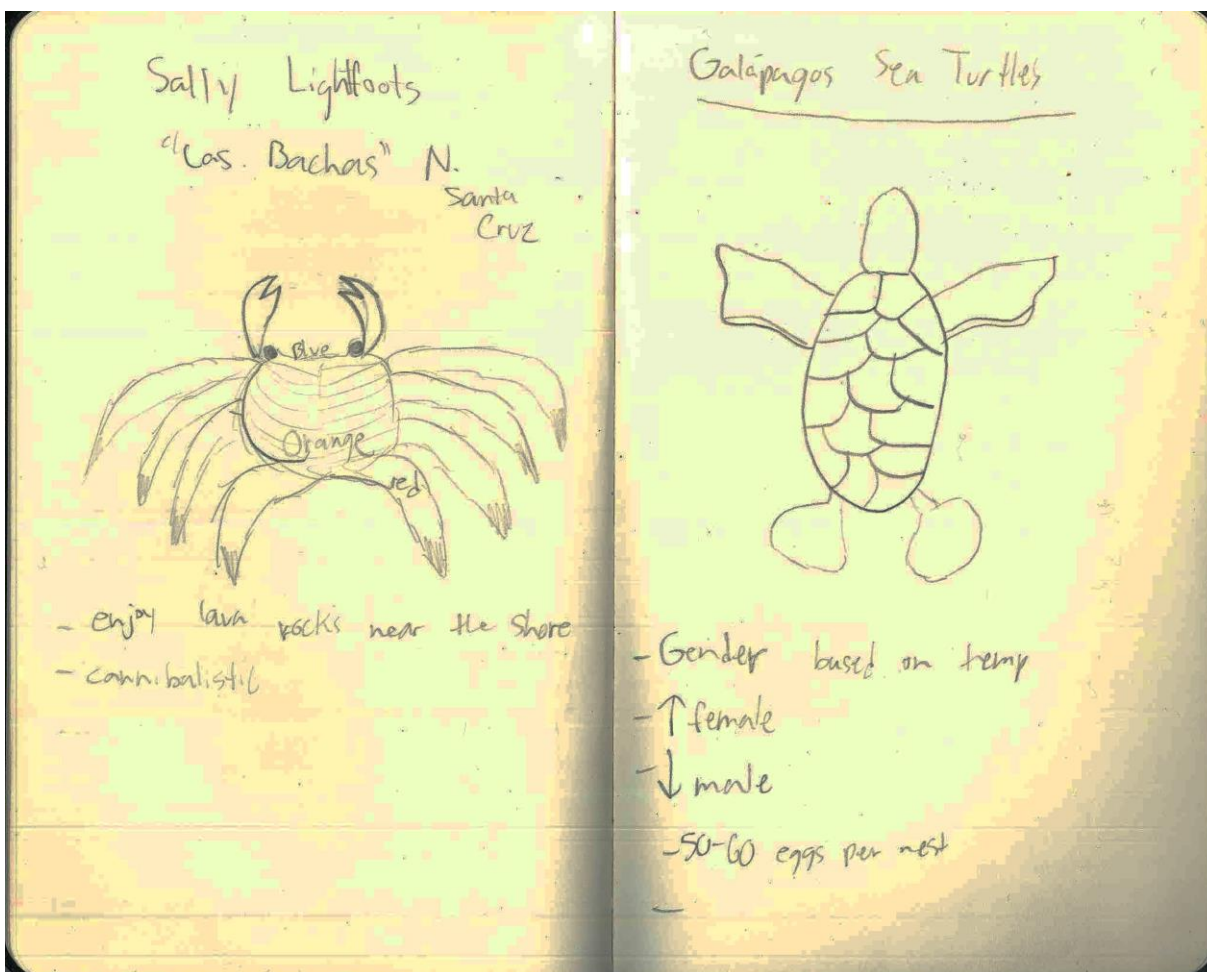 Sally Lightfoots
"Las. Bachas" N.
Santa
Cruz
Blue
Orange
red
- enjoy lava rocks near the shore
- cannibalistic
Galápagos Sea Turtles
- Gender based on temp
- ↑ female
- ↓ male
- 50-60 eggs per nest
-